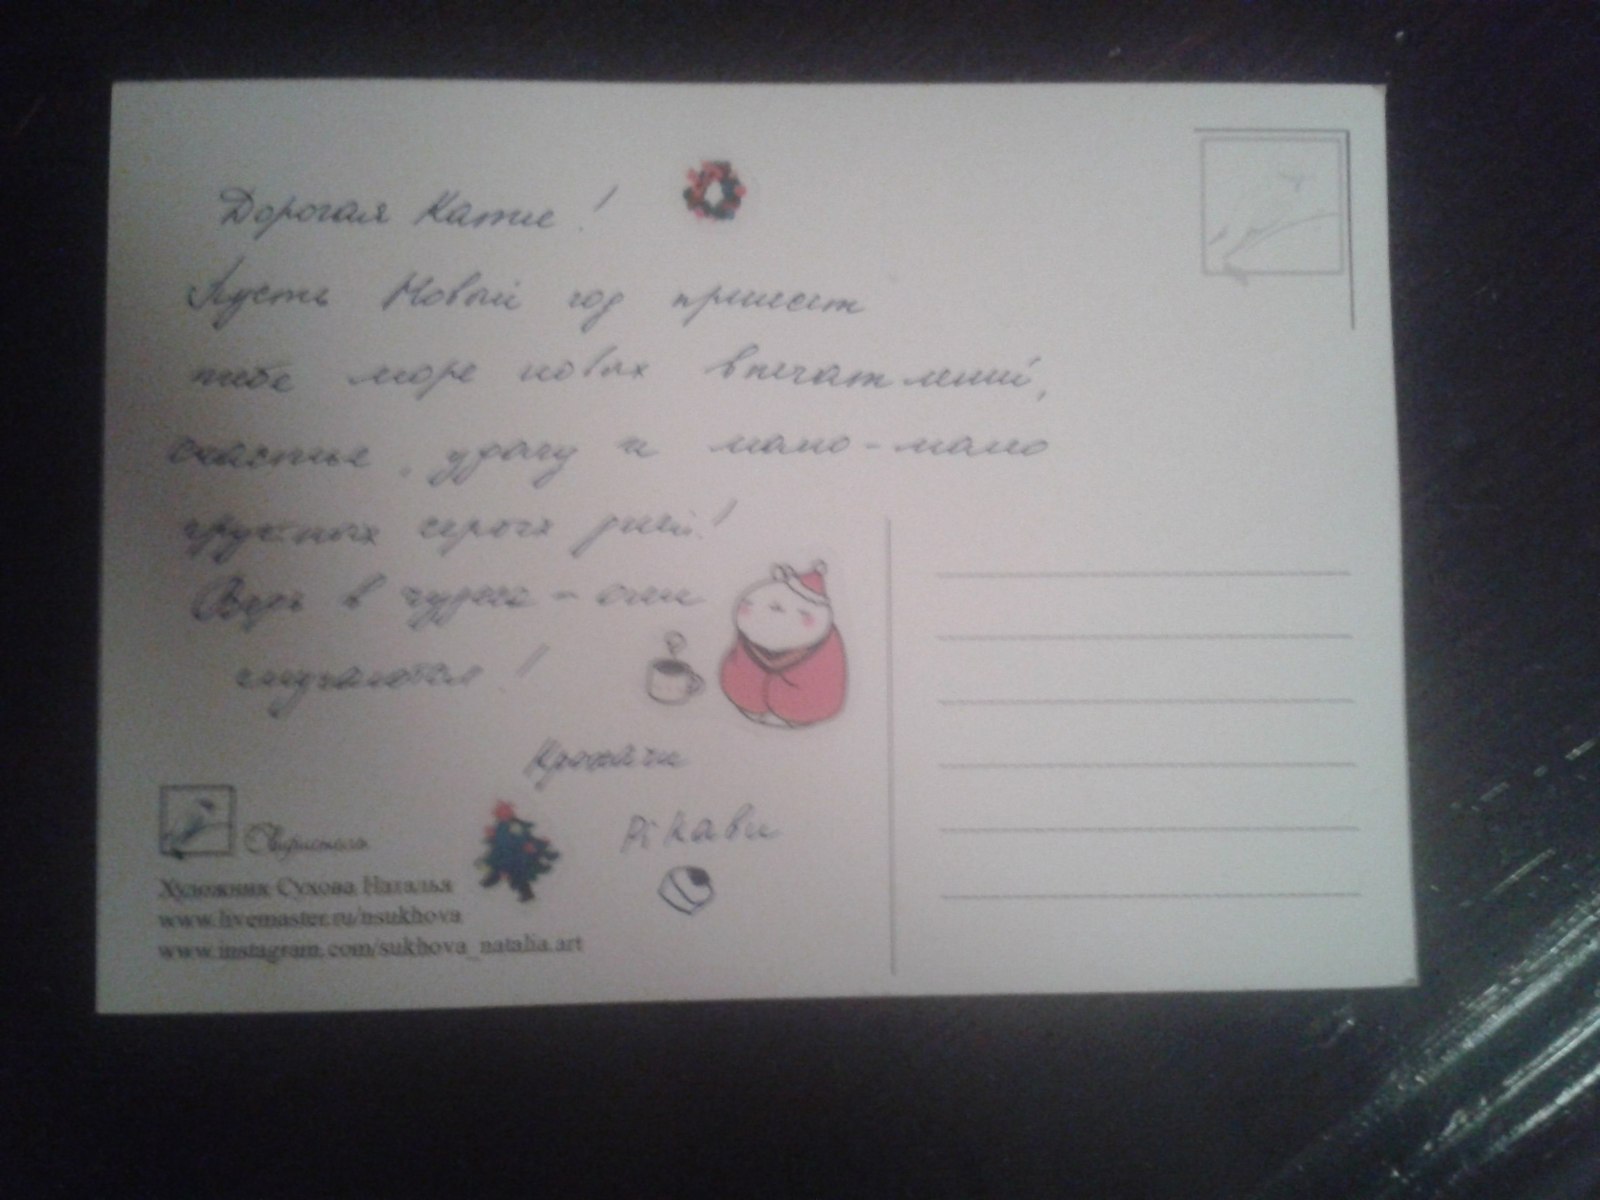 Дорогая Кате!
Пусть Новый год принесет
тебе море новых впечатлений,
счастья, удачу и мало-мало
грустных серых дней!
Верь в чудеса - они
случаются!
Pikabu
Свиристель
Художник Сухова Наталья
www.livemaster.ru/nsukhova
www.instagram.com/sukhova_natalia.art